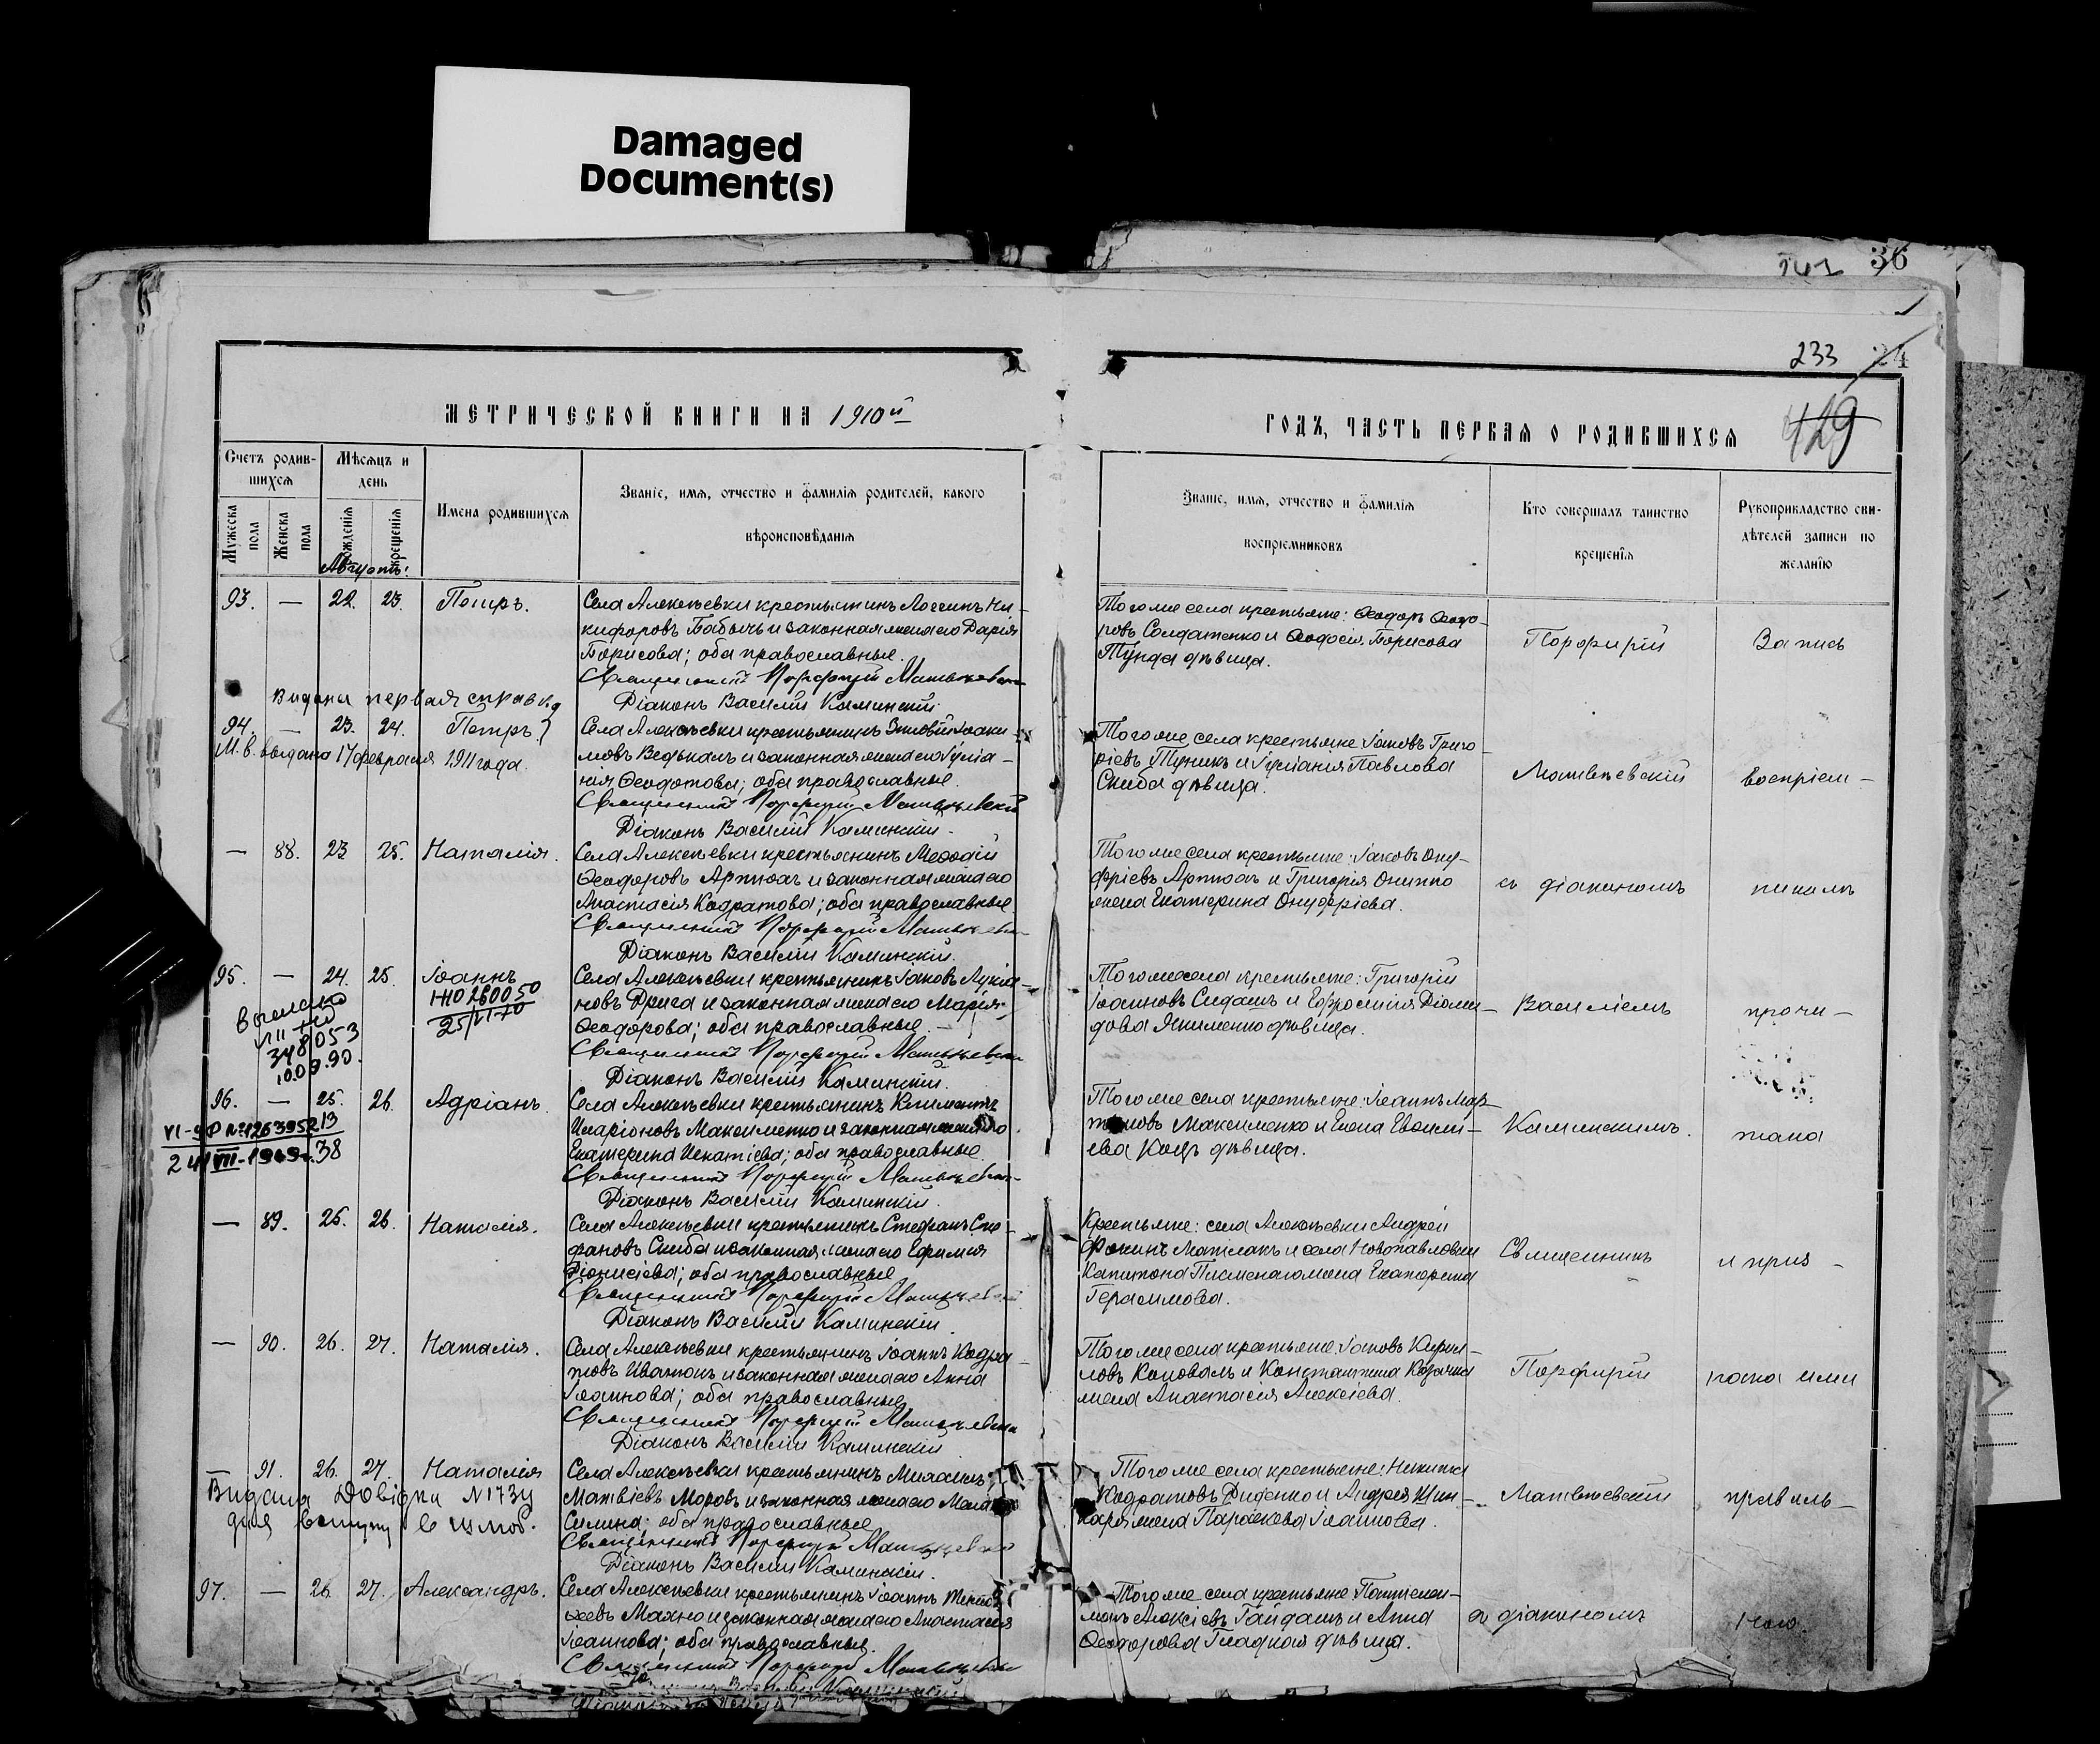 Damaged
Document(s)
36
233 24
429
МЕТРИЧЕСКОЙ КНИГИ НА 1910й
ГОДЪ, ЧАСТЬ ПЕРВАЯ О РОДИВШИХСЯ
Счетъ родив-
шихся
Мужеска
пола
Женска
пола
Мѣсяцъ и
день
рожденія
крещенія
Имена родившихся
Званіе, имя, отчество и фамилія родителей, какого
вѣроисповѣданія
Званіе, имя, отчество и фамилія
воспріемниковъ
Кто совершалъ таинство
крещенія
Рукоприкладство сви-
дѣтелей записи по
желанію
Августъ:
93. — 22. 23. Петръ.
Села Алексѣевки крестьянинъ Логгинъ Ни-
кифоровъ Бабычъ и законная жена его Дарія
Борисова; оба православные.
Священникъ Порфирій Матвѣевскій
Діаконъ Василій Каминскій.
Того же села крестьяне: Ѳеодоръ Ѳеодо-
ровъ Солдатенко и Ѳеодосія Борисова
Тунда дѣвица.
Порфирій
Запись
Видана первая справка
94. — 23. 24. Петръ
М. в. выдана 17 февраля 1911 года.
Села Алексѣевки крестьянинъ Зиновій Іоаки-
мовъ Ведькалъ и законная жена его Іуліа-
нія Ѳеодотова; оба православные.
Священникъ Порфирій Матвѣевскій
Діаконъ Василій Каминскій.
Того же села крестьяне Іаковъ Григо-
ріевъ Тупикъ и Іуліанія Павлова
Скиба дѣвица.
Матвѣевскій
воспріем-
— 88. 23 25. Наталія.
Села Алексѣевки крестьянинъ Меѳодій
Ѳеодоровъ Артюхъ и законная жена его
Анастасія Кодратова; оба православные
Священникъ Порфирій Матвѣевскій
Діаконъ Василій Каминскій.
Того же села крестьяне: Іаковъ Ону-
фріевъ Артюхъ и Григорія Онипко
жена Екатерина Онуфріева.
съ діакономъ
никамъ
95. — 24. 25. Іоаннъ
348053
10.09.90.
Села Алексѣевки крестьянинъ Іаковъ Лукіа-
новъ Дрига и законная жена его Марія
Ѳеодорова; оба православные.
Священникъ Порфирій Матвѣевскій
Діаконъ Василій Каминскій.
Того же села крестьяне: Григорій
Іоанновъ Сидашъ и Евфросинія Діоми-
дова Якименко дѣвица.
Василіемъ
прочи-
96. — 25. 26. Адріанъ.
Села Алексѣевки крестьянинъ Климентъ
Иларіоновъ Максименко и законная жена его
Екатерина Игнатіева; оба православные.
Священникъ Порфирій Матвѣевскій
Діаконъ Василій Каминскій.
Того же села крестьяне: Іоаннъ Мар-
тиновъ Максименко и Елена Евсиги-
ева Коцъ дѣвица.
Каминскимъ.
тана
— 89. 25. 26. Наталія.
Села Алексѣевки крестьянинъ Стефанъ Сте-
фановъ Скиба и законная жена его Ефимія
Діонисіева; оба православные
Священникъ Порфирій Матвѣевскій
Діаконъ Василій Каминскій.
Крестьяне: села Алексѣевки Андрей
Фокинъ Матлакъ и села Новопавловки
Капитона Писменаго жена Екатерина
Герасимова.
Священникъ
и приз-
— 90. 26. 27. Наталія.
Села Алексѣевки крестьянинъ Іоаннъ Кодра-
товъ Ивахонъ и законная жена его Анна
Іоаннова; оба православные
Священникъ Порфирій Матвѣевскій
Діаконъ Василій Каминскій
Того же села крестьяне: Іаковъ Кирил-
ловъ Коноваль и Константина Козачка
жена Анастасія Алексіева.
Порфирій
нана ими
— 91. 26. 27. Наталія
Видана Довідка N1734
для вступу в
Села Алексѣевки крестьянинъ Михаилъ
Матвіевъ Морозъ и законная жена его
Силина; оба православные
Священникъ Порфирій Матвѣевскій
Діаконъ Василій Каминскій.
Того же села крестьяне: Никита
Кодратовъ Диденко и Андрея
жена Параскева Іоаннова.
Матвѣевскій
правиль-
97. — 26. 27. Александръ.
Села Алексѣевки крестьянинъ Іоаннъ Тимо-
ѳеевъ Махно и законная жена его Анастасія
Іоаннова; оба православные.
Священникъ Порфирій Матвѣевскій
Того же села крестьяне Пантелеи-
монъ Алексіевъ Гайдашъ и Анна
Ѳеодорова Гладкая дѣвица.
съ діакономъ
ною.